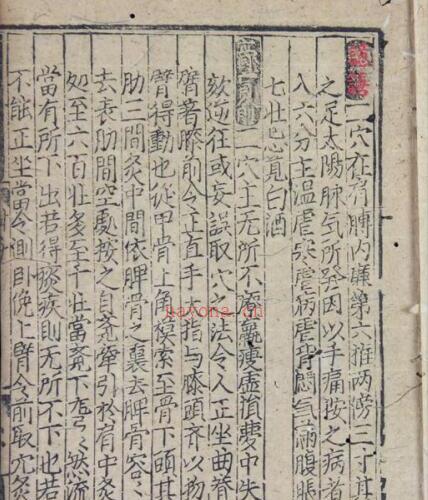 譩譆二穴在肩膊内廉第六椎两傍三寸其
之足太陽脉氣所發因以手痛按之病者
入六分主温瘧寒瘧病瘧背悶氣滿腹脹
七壯忌莧白酒
膏肓俞二穴主无所不療羸瘦虚損夢中失
欬逆狂或妄誤取穴之法令人正坐曲脊
膺著膝前令正直手大指与膝頭齐以物
臂得動也從甲骨上角摸索至骨下頭其
肋三間灸中間依胛骨之裏去胛骨容
去表肋間空處按之自覺牽引於肩中灸
処至六百壯多至千壯當覺下然流
當有所下出若得痰疾則无所不下也若
不能正坐當令側卧俛上臂令前取穴灸
yayona.cn